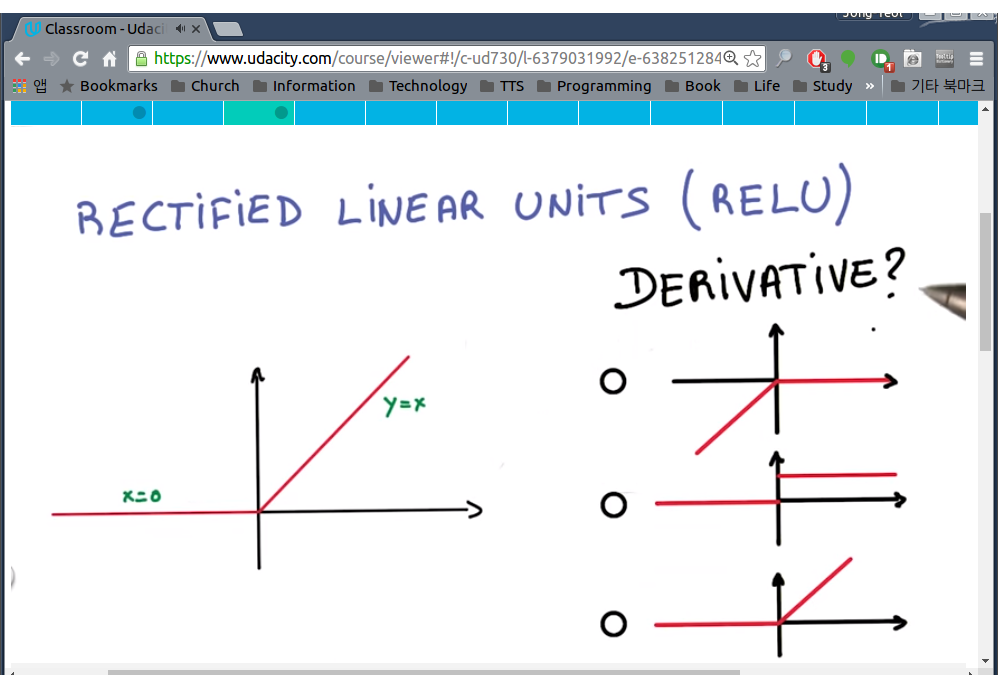 Jong Yeol
Classroom - Udaci
https://www.udacity.com/course/viewer#!/c-ud730/l-6379031992/e-638251284
3
1
앱 Bookmarks Church Information Technology TTS Programming Book Life Study » 기타 북마크
RECTiFiED LiNEAR UNiTS (RELU)
DERiVATiVE?
y=x
x=0